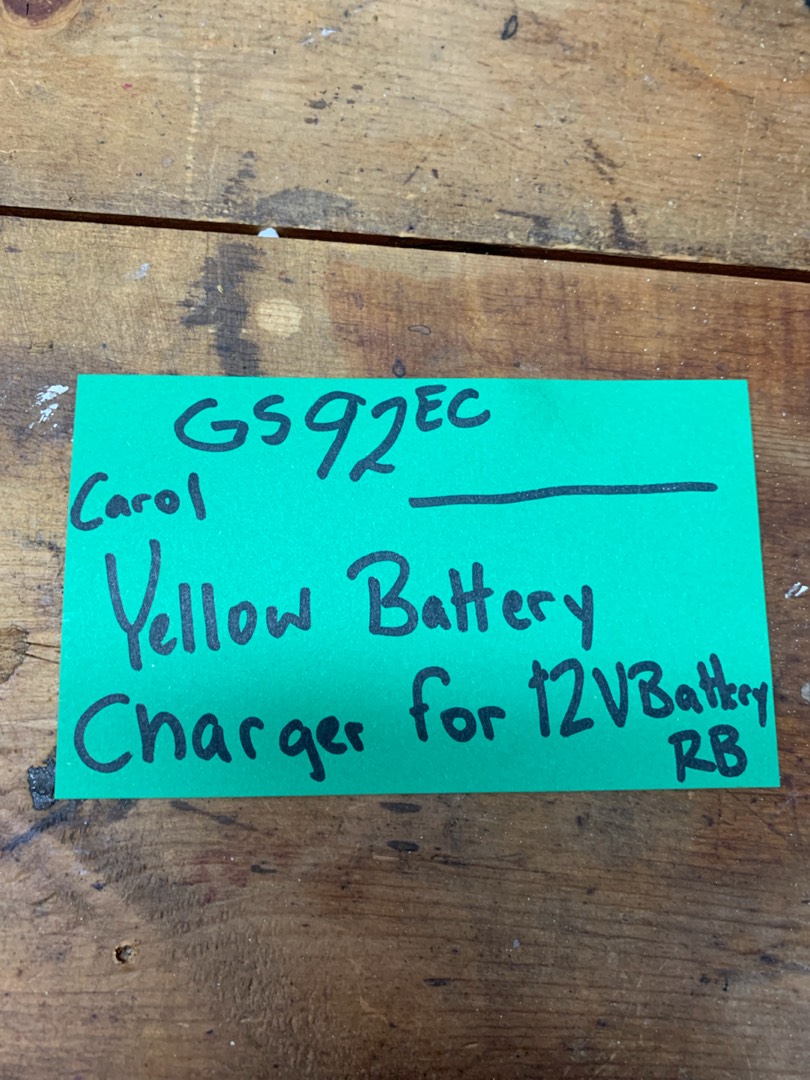 GS92EC
Carol
Yellow Battery
Charger for 12V Battery
RB